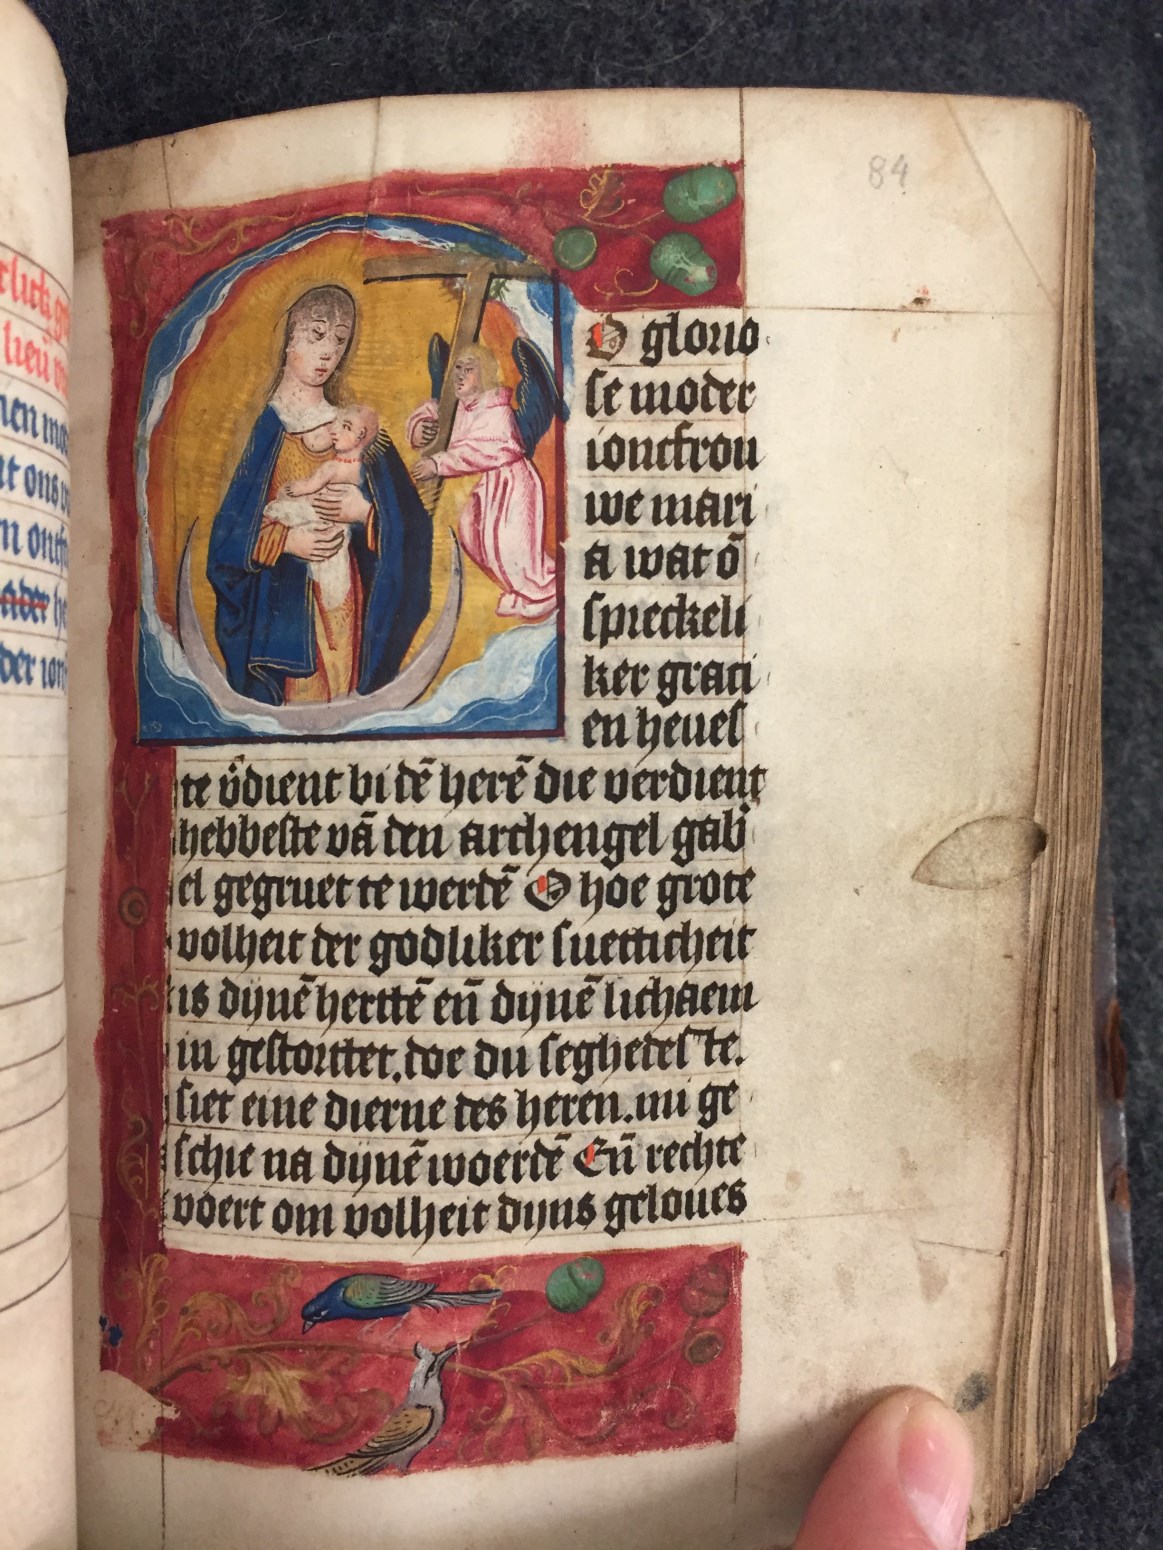 84
O glorio
se moder
ioncfrou
we mari
a wat ō
spreckeli
ker graci
en heues
te v̄dient bi dē herē die verdient
hebbeste vā den archengel gab
el gegruet te werdē O hoe grote
volheit der godliker suetticheit
is dynē herttē en̄ dynē lichaem
in gestorttet. doe du seghedes te.
siet eine dierne des heren. mi ge
schie na dynē woerdē En̄ rechte
voert om volheit dyns geloues